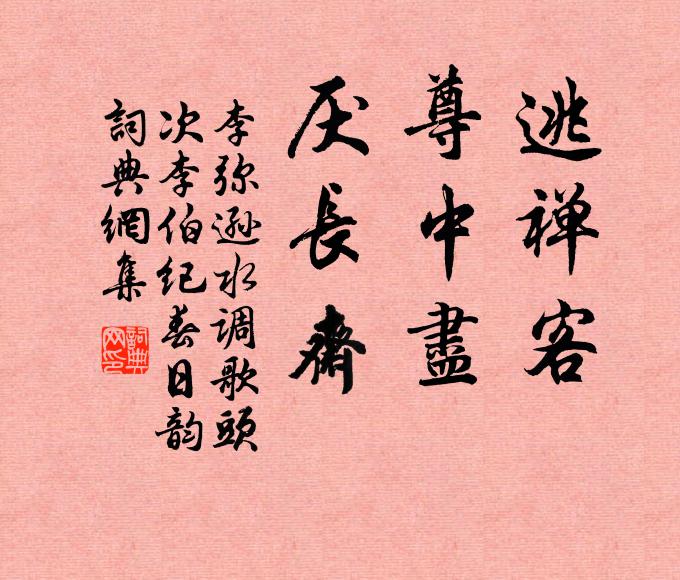 逃禅客
尊中盡
厌長齋
李弥遜水调歌頭
次李伯纪春日韵
詞典網集
詞典网印